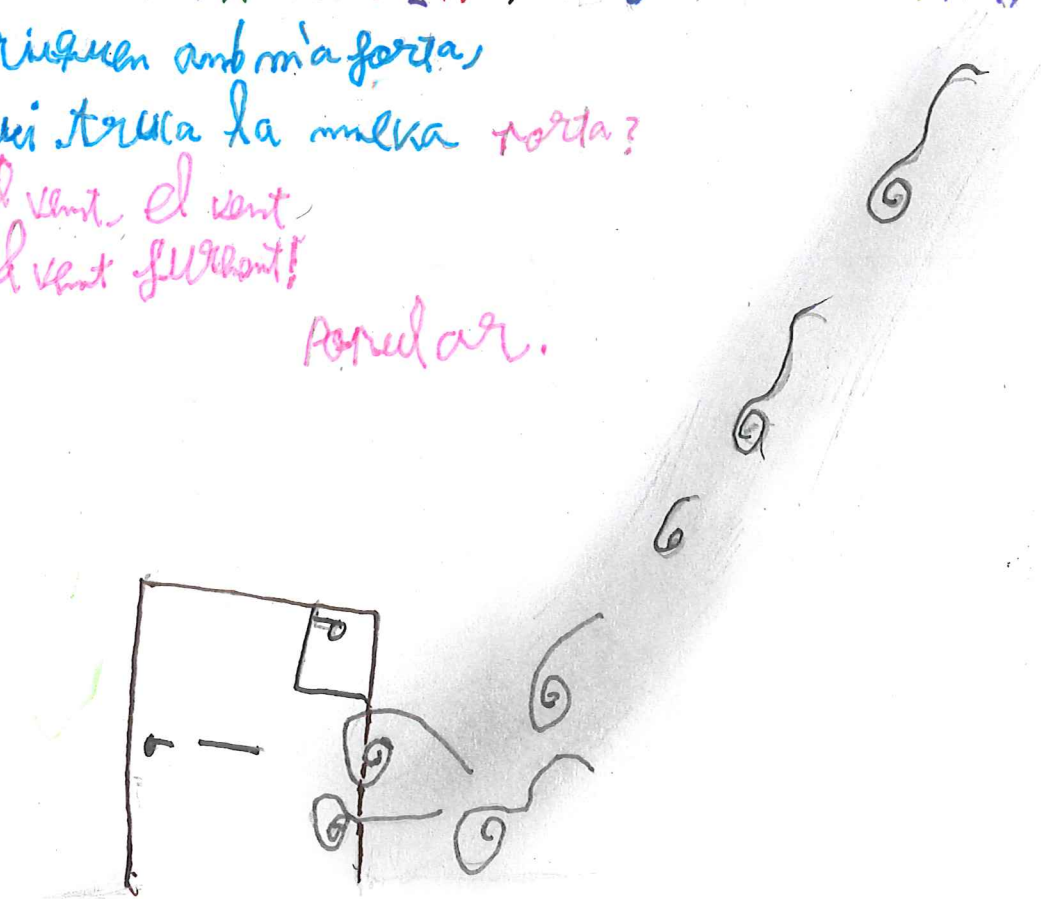 riuquen amb mà forta,
ui truca la meva porta?
l vent, el vent,
l vent furient!
Popular.